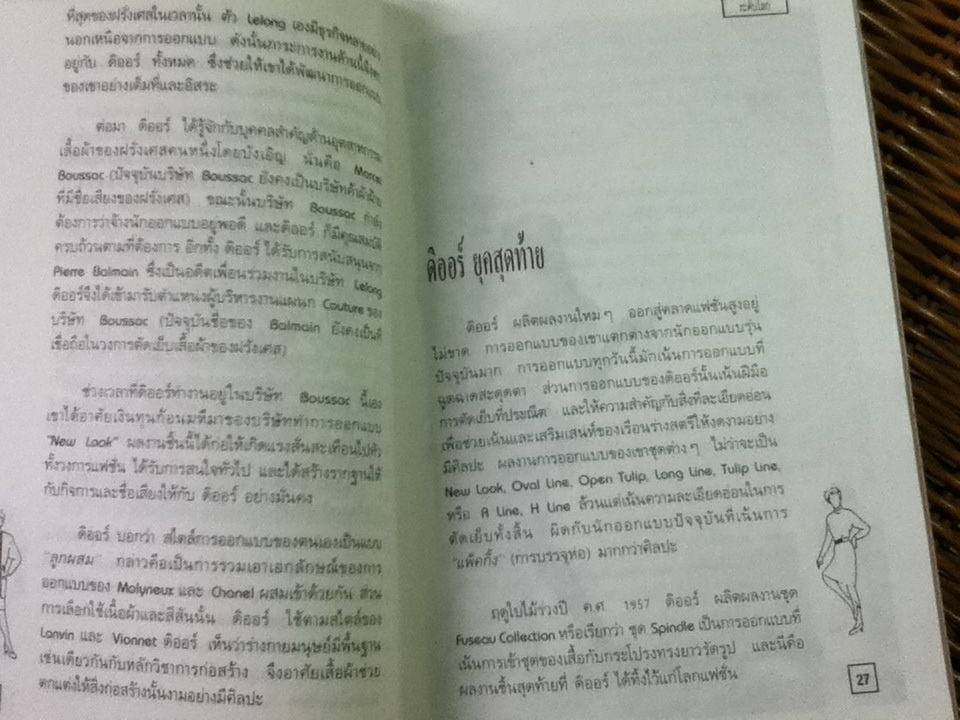 ที่สุดของฝรั่งเศสในเวลานั้น ตัว Lelong เองมีธุรกิจหลายอย่าง
นอกเหนือจากการออกแบบ ดังนั้นภาระการงานด้านนี้จึงตก
อยู่กับ ดิออร์ ทั้งหมด ซึ่งช่วยให้เขาได้พัฒนาการออกแบบ
ของเขาอย่างเต็มที่และอิสระ
ต่อมา ดิออร์ ได้รู้จักกับบุคคลสำคัญด้านอุตสาหกรรม
เสื้อผ้าของฝรั่งเศสคนหนึ่งโดยบังเอิญ นั่นคือ Marcel
Boussac (ปัจจุบันบริษัท Boussac ยังคงเป็นบริษัทค้าผ้าฝ้าย
ที่มีชื่อเสียงของฝรั่งเศส) ขณะนั้นบริษัท Boussac กำลัง
ต้องการว่าจ้างนักออกแบบอยู่พอดี และดิออร์ ก็มีคุณสมบัติ
ครบถ้วนตามที่ต้องการ อีกทั้ง ดิออร์ ได้รับการสนับสนุนจาก
Pierre Balmain ซึ่งเป็นอดีตเพื่อนร่วมงานในบริษัท Lelong
ดิออร์จึงได้เข้ามารับตำแหน่งผู้บริหารงานแผนก Couture ของ
บริษัท Boussac (ปัจจุบันชื่อของ Balmain ยังคงเป็นที่
เชื่อถือในวงการตัดเย็บเสื้อผ้าของฝรั่งเศส)
ช่วงเวลาที่ดิออร์ทำงานอยู่ในบริษัท Boussac นี้เอง
เขาได้อาศัยเงินทุนก้อนมหึมาของบริษัททำการออกแบบ
"New Look" ผลงานชิ้นนี้ได้ก่อให้เกิดแรงสั่นสะเทือนไปทั่ว
ทั้งวงการแฟชั่น ได้รับการสนใจทั่วไป และได้สร้างรากฐานให้
กับกิจการและชื่อเสียงให้กับ ดิออร์ อย่างมั่นคง
ดิออร์ บอกว่า สไตล์การออกแบบของตนเองเป็นแบบ
"ลูกผสม" กล่าวคือเป็นการรวมเอาเอกลักษณ์ของการ
ออกแบบของ Molyneux และ Chanel ผสมเข้าด้วยกัน ส่วน
การเลือกใช้เนื้อผ้าและสีสันนั้น ดิออร์ ใช้ตามสไตล์ของ
Lanvin และ Vionnet ดิออร์ เห็นว่าร่างกายมนุษย์มีพื้นฐาน
เช่นเดียวกันกับหลักวิชาการก่อสร้าง จึงอาศัยเสื้อผ้าช่วย
ตกแต่งให้สิ่งก่อสร้างนั้นงามอย่างมีศิลปะ
ระดับโลก
ดิออร์ ยุคสุดท้าย
ดิออร์ ผลิตผลงานใหม่ๆ ออกสู่ตลาดแฟชั่นสูงอยู่
ไม่ขาด การออกแบบของเขาแตกต่างจากนักออกแบบรุ่น
ปัจจุบันมาก การออกแบบทุกวันนี้มักเน้นการออกแบบที่
ฉูดฉาดสะดุดตา ส่วนการออกแบบของดิออร์นั้นเน้นฝีมือ
การตัดเย็บที่ประณีต และให้ความสำคัญกับสิ่งที่ละเอียดอ่อน
เพื่อช่วยเน้นและเสริมเสน่ห์ของเรือนร่างสตรีให้งดงามอย่าง
มีศิลปะ ผลงานการออกแบบของเขาชุดต่างๆ ไม่ว่าจะเป็น
New Look, Oval Line, Open Tulip, Long Line, Tulip Line,
หรือ A Line, H Line ล้วนแต่เน้นความละเอียดอ่อนในการ
ตัดเย็บทั้งสิ้น ผิดกับนักออกแบบปัจจุบันที่เน้นการ
"แพ็คกิ้ง" (การบรรจุห่อ) มากกว่าศิลปะ
ฤดูใบไม้ร่วงปี ค.ศ 1957 ดิออร์ ผลิตผลงานชุด
Fuseau Collection หรือเรียกว่า ชุด Spindle เป็นการออกแบบที่
เน้นการเข้าชุดของเสื้อกับกระโปรงทรงยาวรัดรูป และนี่คือ
ผลงานชิ้นสุดท้ายที่ ดิออร์ ได้ทิ้งไว้แก่โลกแฟชั่น
27